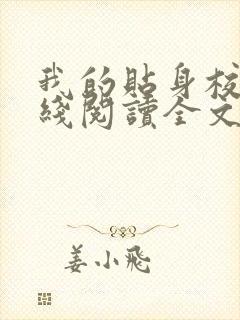 我的貼身校
綫閱讀全文
姜小飛